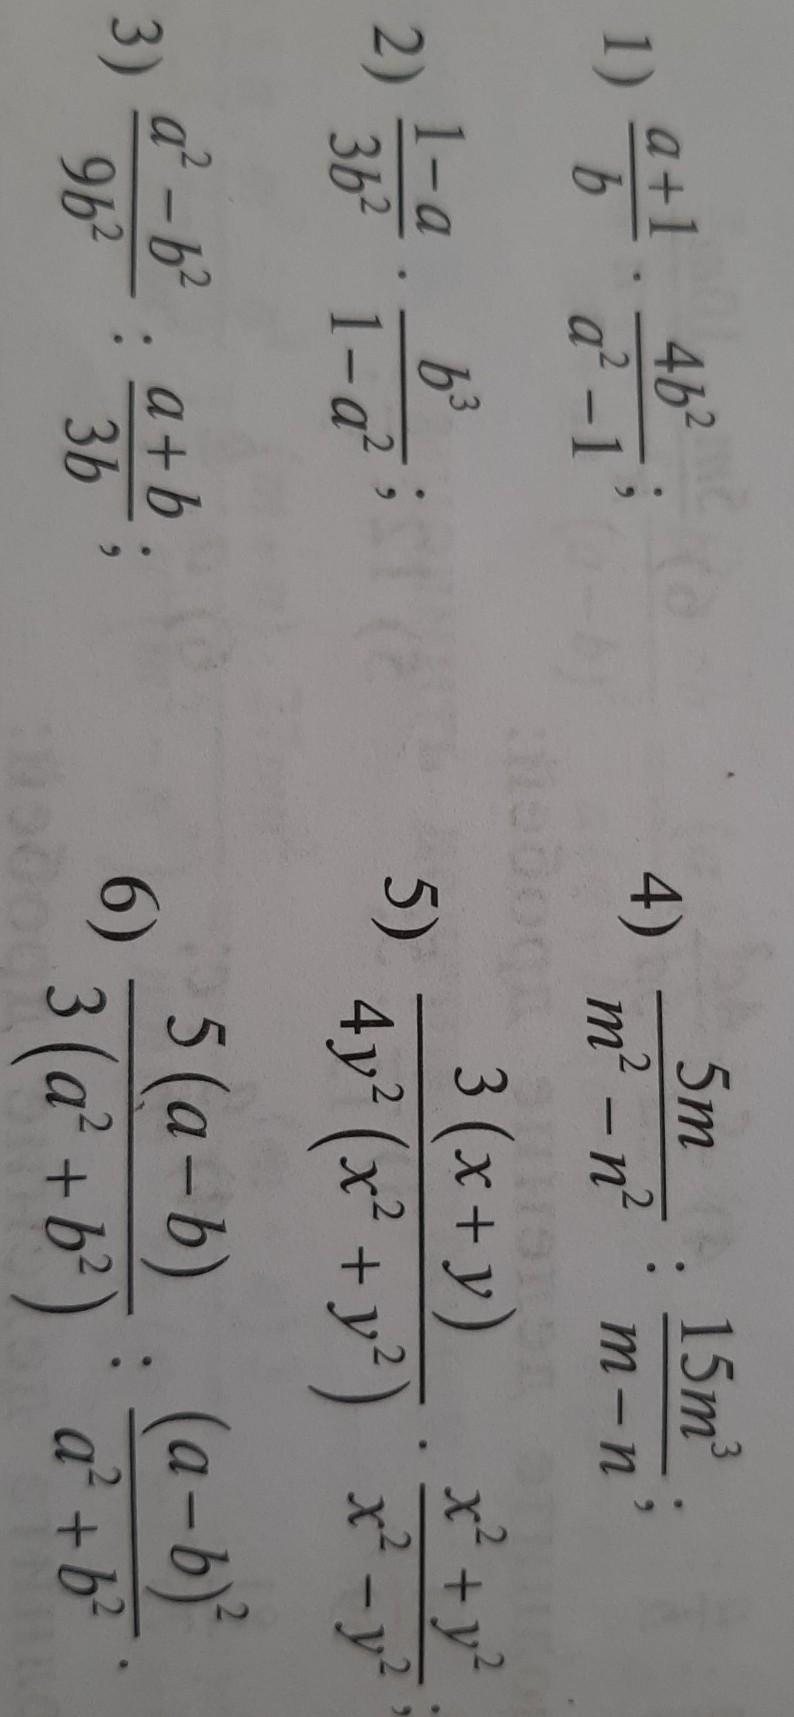 1) \frac{a+1}{b} · \frac{4b^2}{a^2-1};
2) \frac{1-a}{3b^2} · \frac{b^3}{1-a^2};
3) \frac{a^2-b^2}{9b^2} : \frac{a+b}{3b};
4) \frac{5m}{m^2-n^2} : \frac{15m^3}{m-n};
5) \frac{3(x+y)}{4y^2(x^2+y^2)} · \frac{x^2+y^2}{x^2-y^2};
6) \frac{5(a-b)}{3(a^2+b^2)} : \frac{(a-b)^2}{a^2+b^2}.